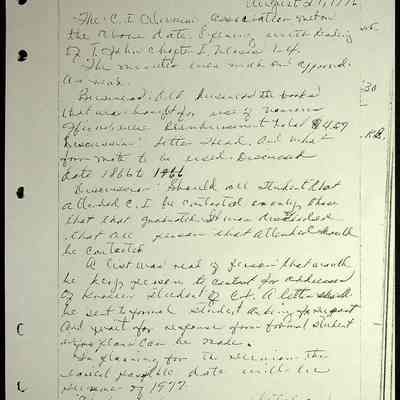 August 21, 1976
The C. I. Alumni Association met on
the above date. Opening with reading
of I John Chapter I, Verses 1-4.
The minutes were read and approved.
As read.
Discussed the books
that was bought for use of various
$4.59
Discussion: Letter Head. And what
format to be used. Discussed
date 1866 to 1966
Discussion: Should all student that
attended C. I. be contacted or only those
that that graduated. It was decided
that all person that attended should
be contacted
A list was read of person that would
be key person to contact for addresses
of former student of C. I. A letter should
be sent to formal student asking for support
And wait for response from formal student
plans Can be made.
In planning for the reunion the
possible date will be
summer of 1977.